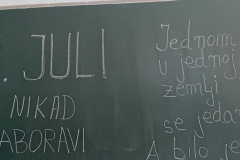 . JULI
NIKAD
ABORAVI
Jednom
u jednoj
zemlji
se jedan
A bilo je